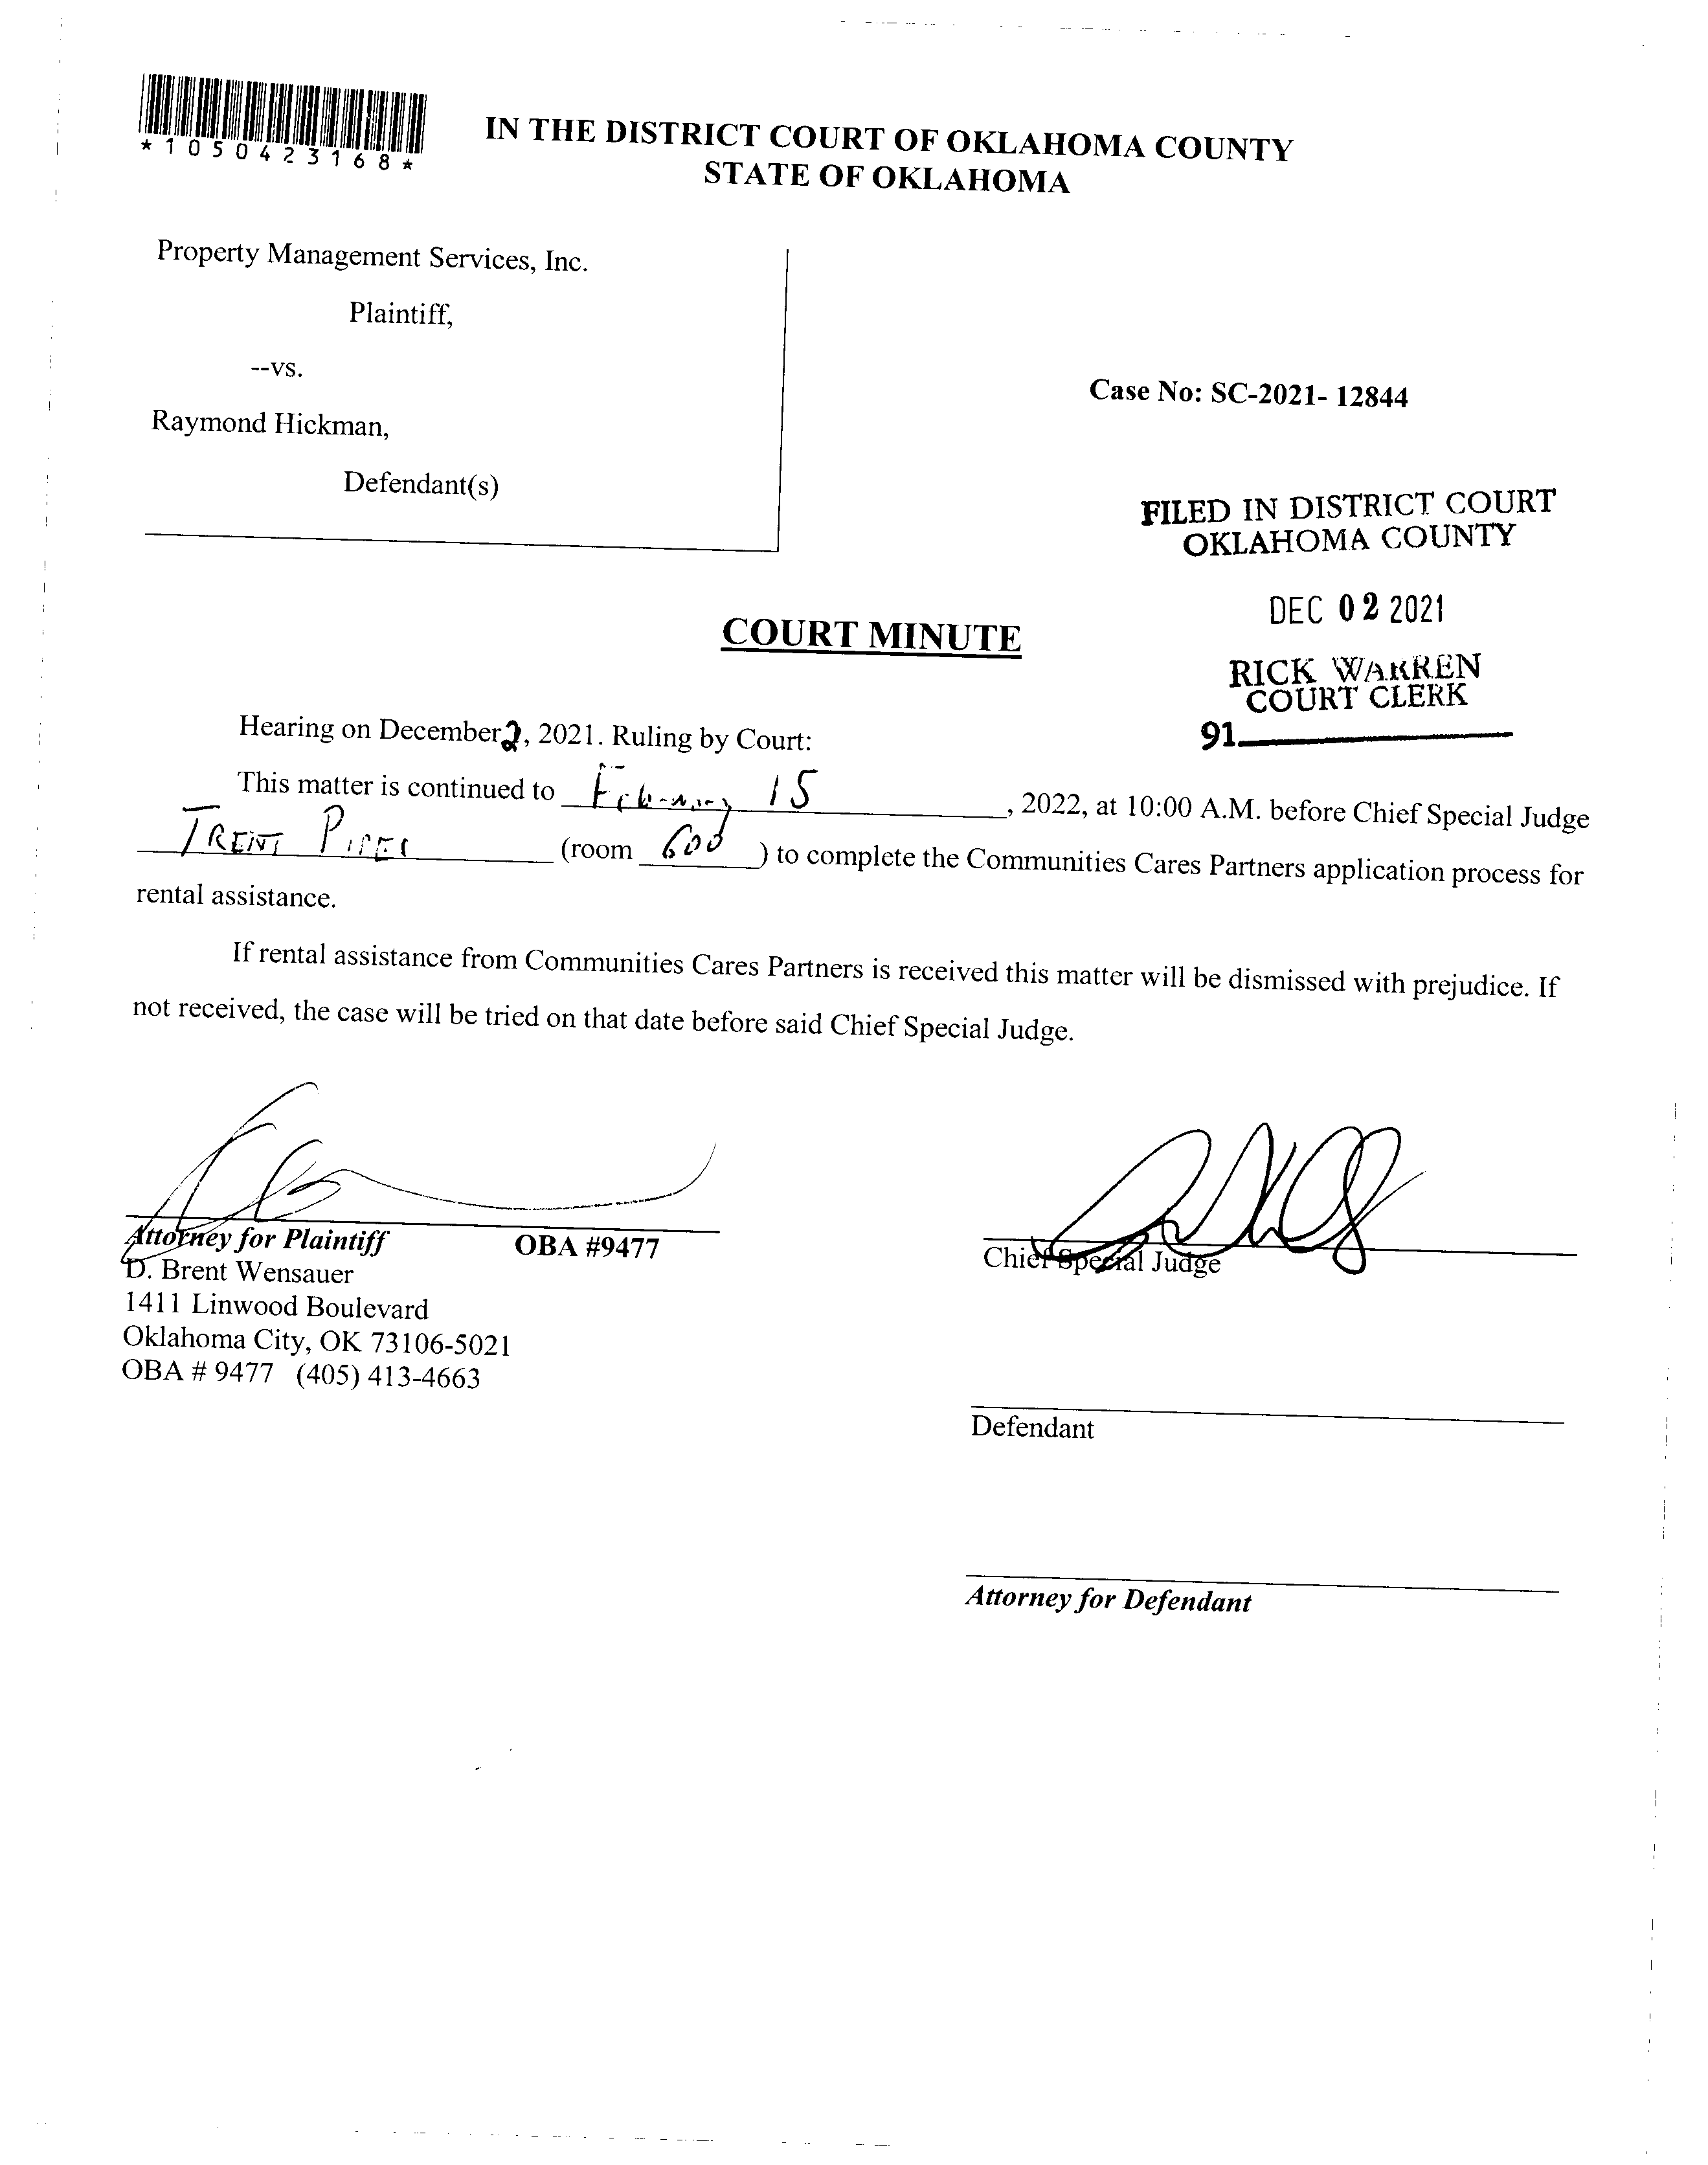 *1050423168*
IN THE DISTRICT COURT OF OKLAHOMA COUNTY
STATE OF OKLAHOMA
Property Management Services, Inc.
Plaintiff,
--vs.
Raymond Hickman,
Defendant(s)
Case No: SC-2021- 12844
FILED IN DISTRICT COURT
OKLAHOMA COUNTY
DEC 02 2021
RICK WARREN
COURT CLERK
91
COURT MINUTE
Hearing on December 2, 2021. Ruling by Court:
This matter is continued to February 15, 2022, at 10:00 A.M. before Chief Special Judge
TRENT (room 600) to complete the Communities Cares Partners application process for
rental assistance.
If rental assistance from Communities Cares Partners is received this matter will be dismissed with prejudice. If
not received, the case will be tried on that date before said Chief Special Judge.
Attorney for Plaintiff OBA #9477
D. Brent Wensauer
1411 Linwood Boulevard
Oklahoma City, OK 73106-5021
OBA # 9477 (405) 413-4663
Chief Special Judge
Defendant
Attorney for Defendant